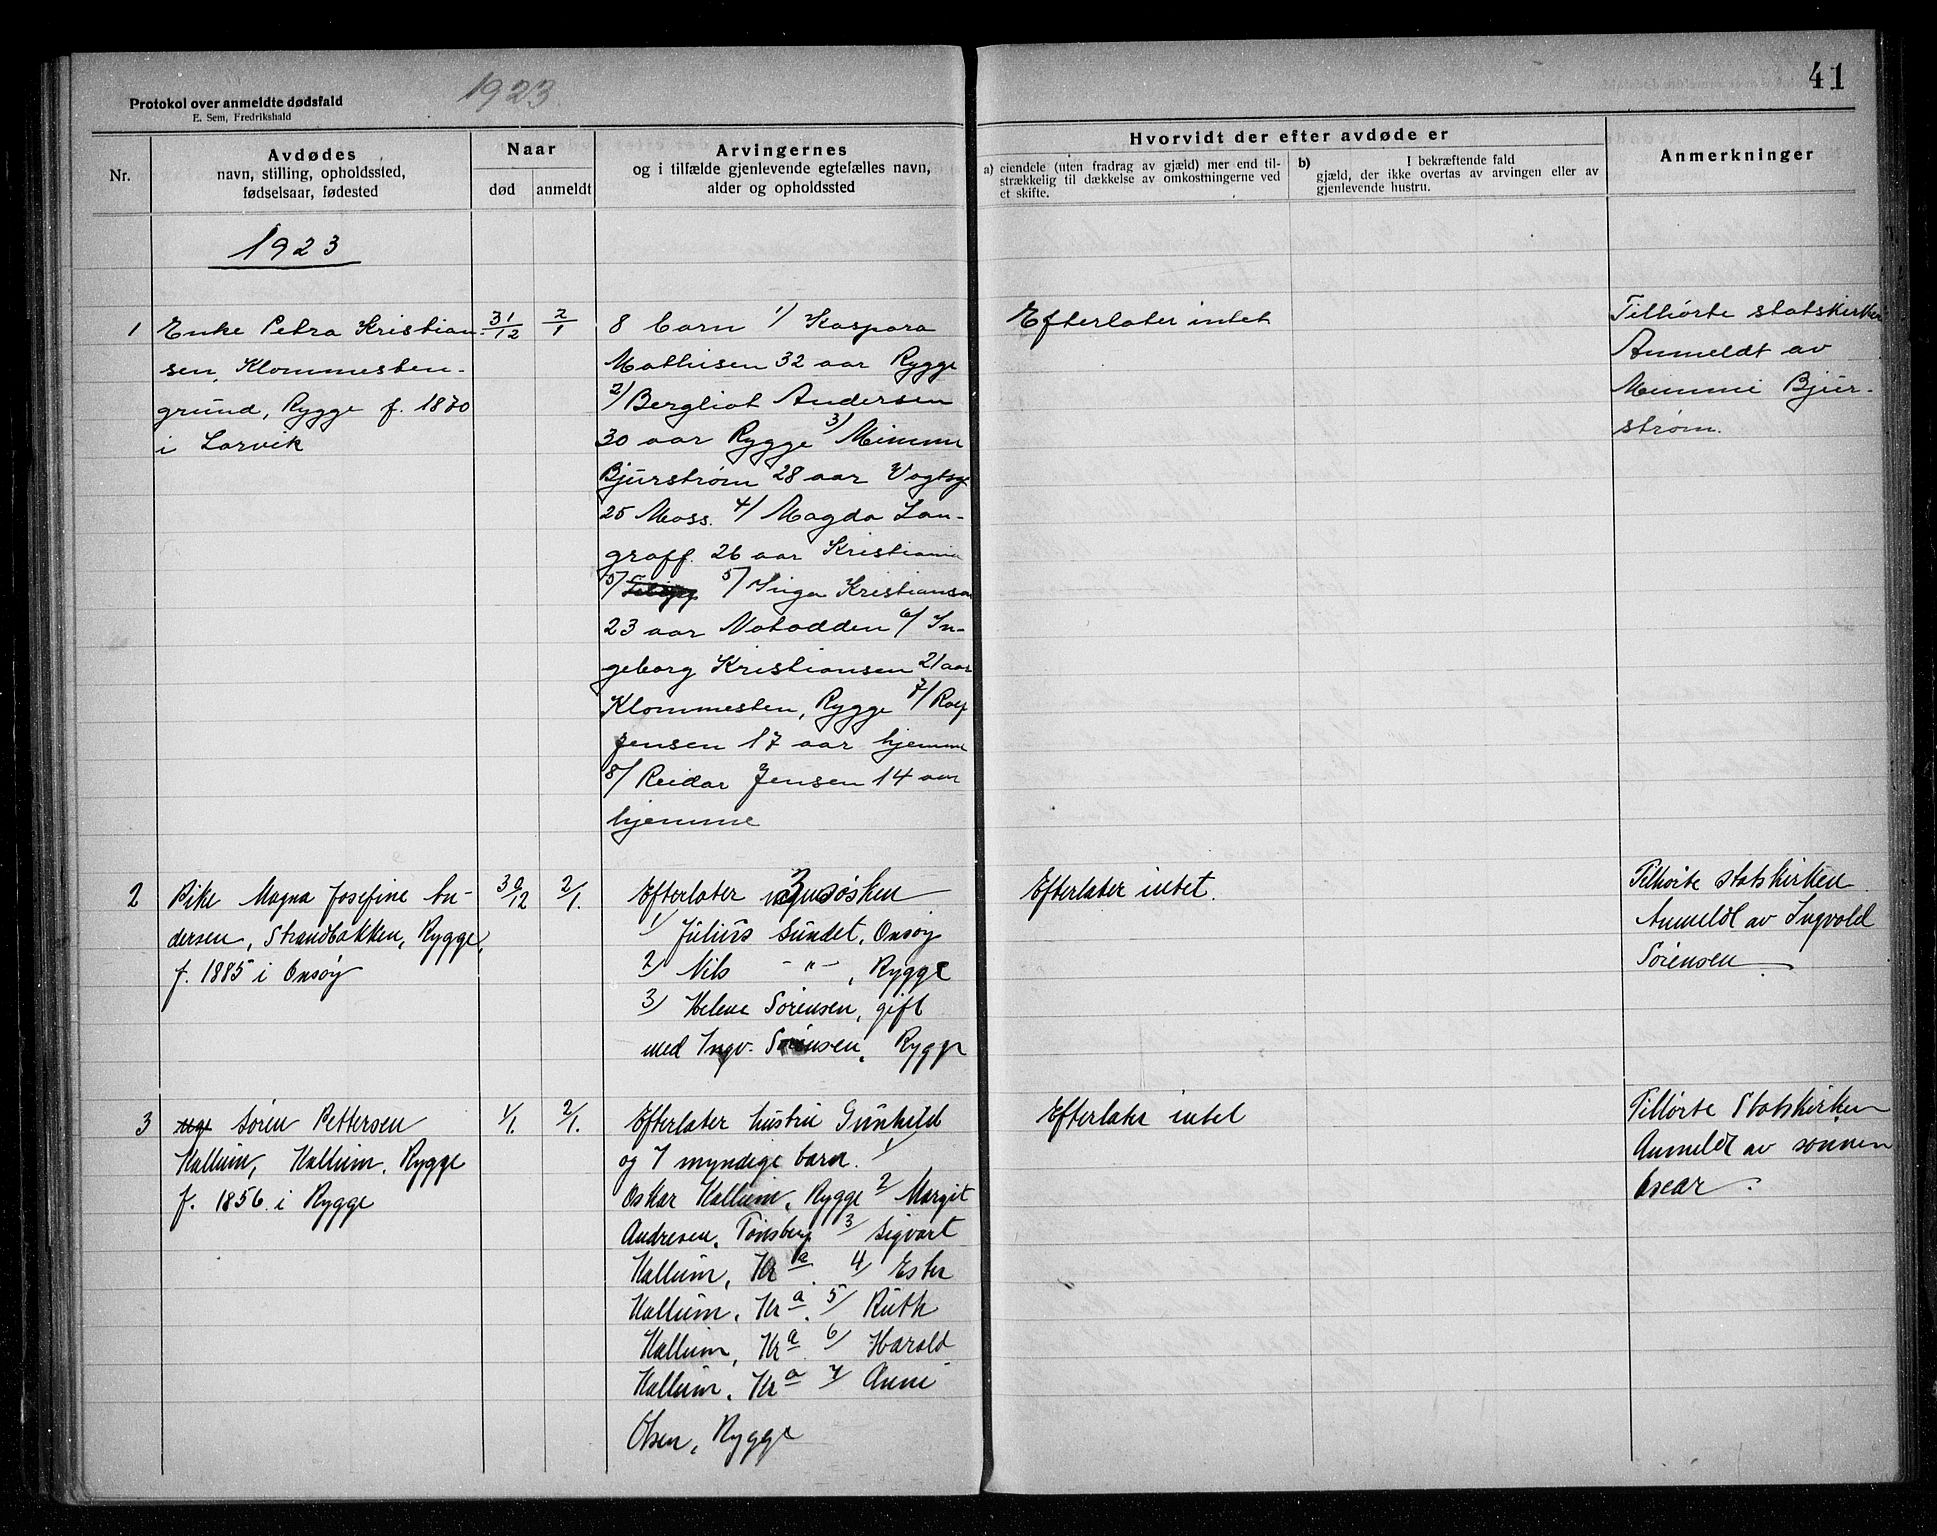 Protokol over anmeldte dødsfald
E. Sem, Fredrikshald
1923
41
Nr.
Avdødes
navn, stilling, opholdssted,
fødselsaar, fødested
Naar
død
anmeldt
Arvingernes
og i tilfælde gjenlevende egtefælles navn,
alder og opholdssted
Hvorvidt der efter avdøde er
a) eiendele (uten fradrag av gjæld) mer end til-
strækkelig til dækkelse av omkostningerne ved
et skifte.
b) I bekræftende fald
gjæld, der ikke overtas av arvingen eller av
gjenlevende hustru.
Anmerkninger
1923
1
Enke Petra Kristian-
sen, Klommesten-
grund, Rygge f. 1870
i Larvik
31/12
2/1
8 barn 1/ Kaspara
Mathisen 32 aar Rygge
2/ Bergliot Andersen
30 aar Rygge 3/ Mimmi
Bjurstrøm 28 aar Vogtsg
25 Moss. 4/ Magda Lan-
graff. 26 aar Kristiania
5/ 5/ Inga Kristiansen
23 aar Notodden 6/ In-
geborg Kristiansen 21 aar
Klommesten, Rygge 7/ Rolf
Jensen 17 aar hjemme
8/ Reidar Jensen 14 aar
hjemme
Efterlater intet
Tilhørte statskirken
Anmeldt av
Mimmi Bjur-
strøm.
2
Pike Magna Josefine An-
dersen, Strandbakken, Rygge,
f. 1885 i Onsøy
30/12
2/1.
Efterlater 3 søsken
1/ Julius Sundet, Onsøy
2/ Nils -"-, Rygge
3/ Helene Sørensen, gift
med Ingv. Sørensen, Rygge
Efterlater intet.
Tilhørte statskirken
Anmeldt av Ingvald
Sørensen
3
Søren Pettersen
Hallum, Hallum, Rygge
f. 1856. i Rygge
1/1.
2/1.
Efterlater hustru Gunhild
og 7 myndige barn. 1/
Oskar Hallum, Rygge 2/ Margit
Andresen, Tønsberg 3/ Sigvart
Hallum, Kra. 4/ Ester
Hallum, Kra. 5/ Ruth
Hallum, Kra. 6/ Harald
Hallum, Kra 7/ Anni
Olsen, Rygge
Efterlater intet
Tilhørte Statskirken
Anmeldt av sønnen
Oscar.